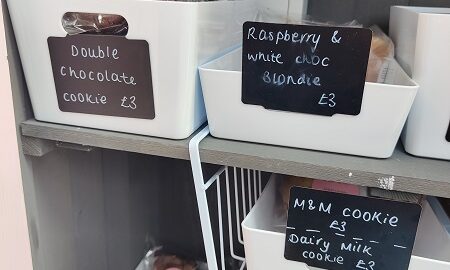 Double
chocolate
cookie £3
Raspberry &
white choc
Blondie
£3
M&M cookie
£3
Dairy Milk
cookie £3